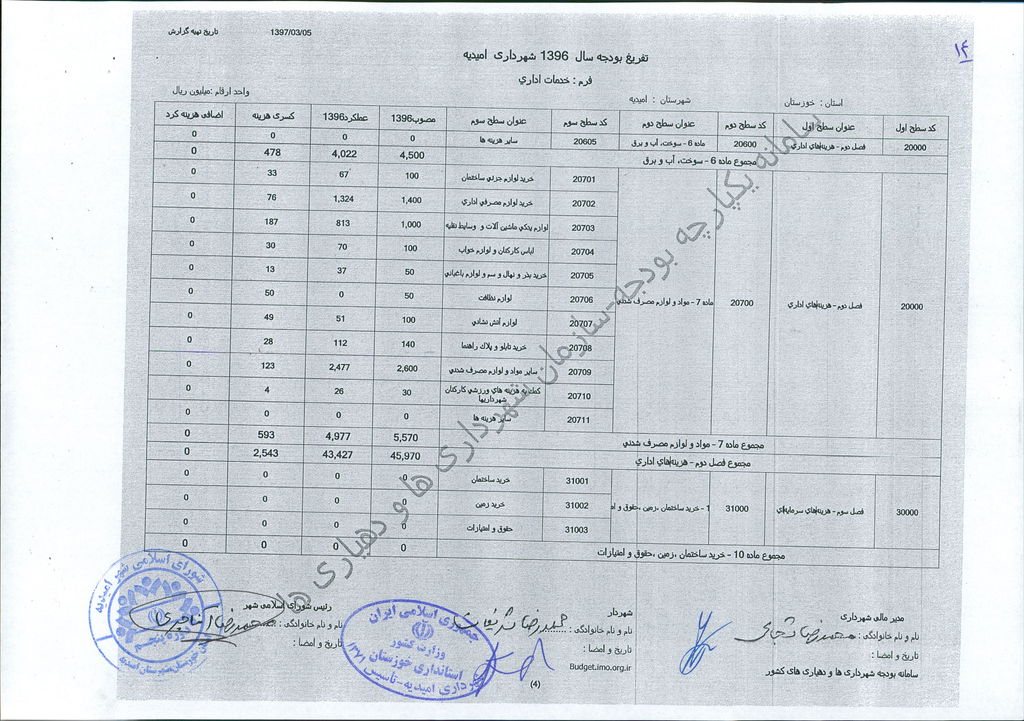 ۱۴
تاریخ تهیه گزارش 1397/03/05
تفریغ بودجه سال 1396 شهرداری امیدیه
فرم : خدمات اداری
استان : خوزستان شهرستان : امیدیه واحد ارقام :میلیون ریال
کد سطح اول عنوان سطح اول کد سطح دوم عنوان سطح دوم کد سطح سوم عنوان سطح سوم مصوب1396 عملکرد1396 کسری هزینه اضافی هزینه کرد
20000 فصل دوم - هزینه‌های اداری 20600 ماده 6 - سوخت، آب و برق 20605 سایر هزینه ها 0 0 0 0
مجموع ماده 6 - سوخت، آب و برق 4,500 4,022 478 0
20000 فصل دوم - هزینه‌های اداری 20700 ماده 7 - مواد و لوازم مصرف شدنی
20701 خرید لوازم جزئی ساختمان 100 67 33 0
20702 خرید لوازم مصرفی اداری 1,400 1,324 76 0
20703 لوازم یدکی ماشین آلات و وسایط نقلیه 1,000 813 187 0
20704 لباس کارکنان و لوازم خواب 100 70 30 0
20705 خرید بذر و نهال و سم و لوازم باغبانی 50 37 13 0
20706 لوازم نظافت 50 0 50 0
20707 لوازم آتش نشانی 100 51 49 0
20708 خرید تابلو و پلاک راهنما 140 112 28 0
20709 سایر مواد و لوازم مصرف شدنی 2,600 2,477 123 0
20710 کمک به هزینه های ورزشی کارکنان شهرداریها 30 26 4 0
20711 سایر هزینه ها 0 0 0 0
مجموع ماده 7 - مواد و لوازم مصرف شدنی 5,570 4,977 593 0
مجموع فصل دوم - هزینه‌های اداری 45,970 43,427 2,543 0
30000 فصل سوم - هزینه‌های سرمایه‌ای 31000 1 - خرید ساختمان ،زمین ،حقوق و ام
31001 خرید ساختمان 0 0 0 0
31002 خرید زمین 0 0 0 0
31003 حقوق و امتیازات 0 0 0 0
مجموع ماده 10 - خرید ساختمان ،زمین ،حقوق و امتیازات 0 0 0 0
سامانه یکپارچه بودجه-سازمان شهرداری ها و دهیاری ها
مدیر مالی شهرداری
نام و نام خانوادگی : محمدرضا
تاریخ و امضا :
سامانه بودجه شهرداری ها و دهیاری های کشور
شهردار
نام و نام خانوادگی :
تاریخ و امضا :
Budget.imo.org.ir
(4)
رئیس شورای اسلامی شهر
نام و نام خانوادگی : محمدرضا
تاریخ و امضا :
جمهوری اسلامی ایران
وزارت کشور
استانداری خوزستان
شهرداری امیدیه-تأسیس ۱۳۷۱
شورای اسلامی شهر امیدیه
دوره پنجم